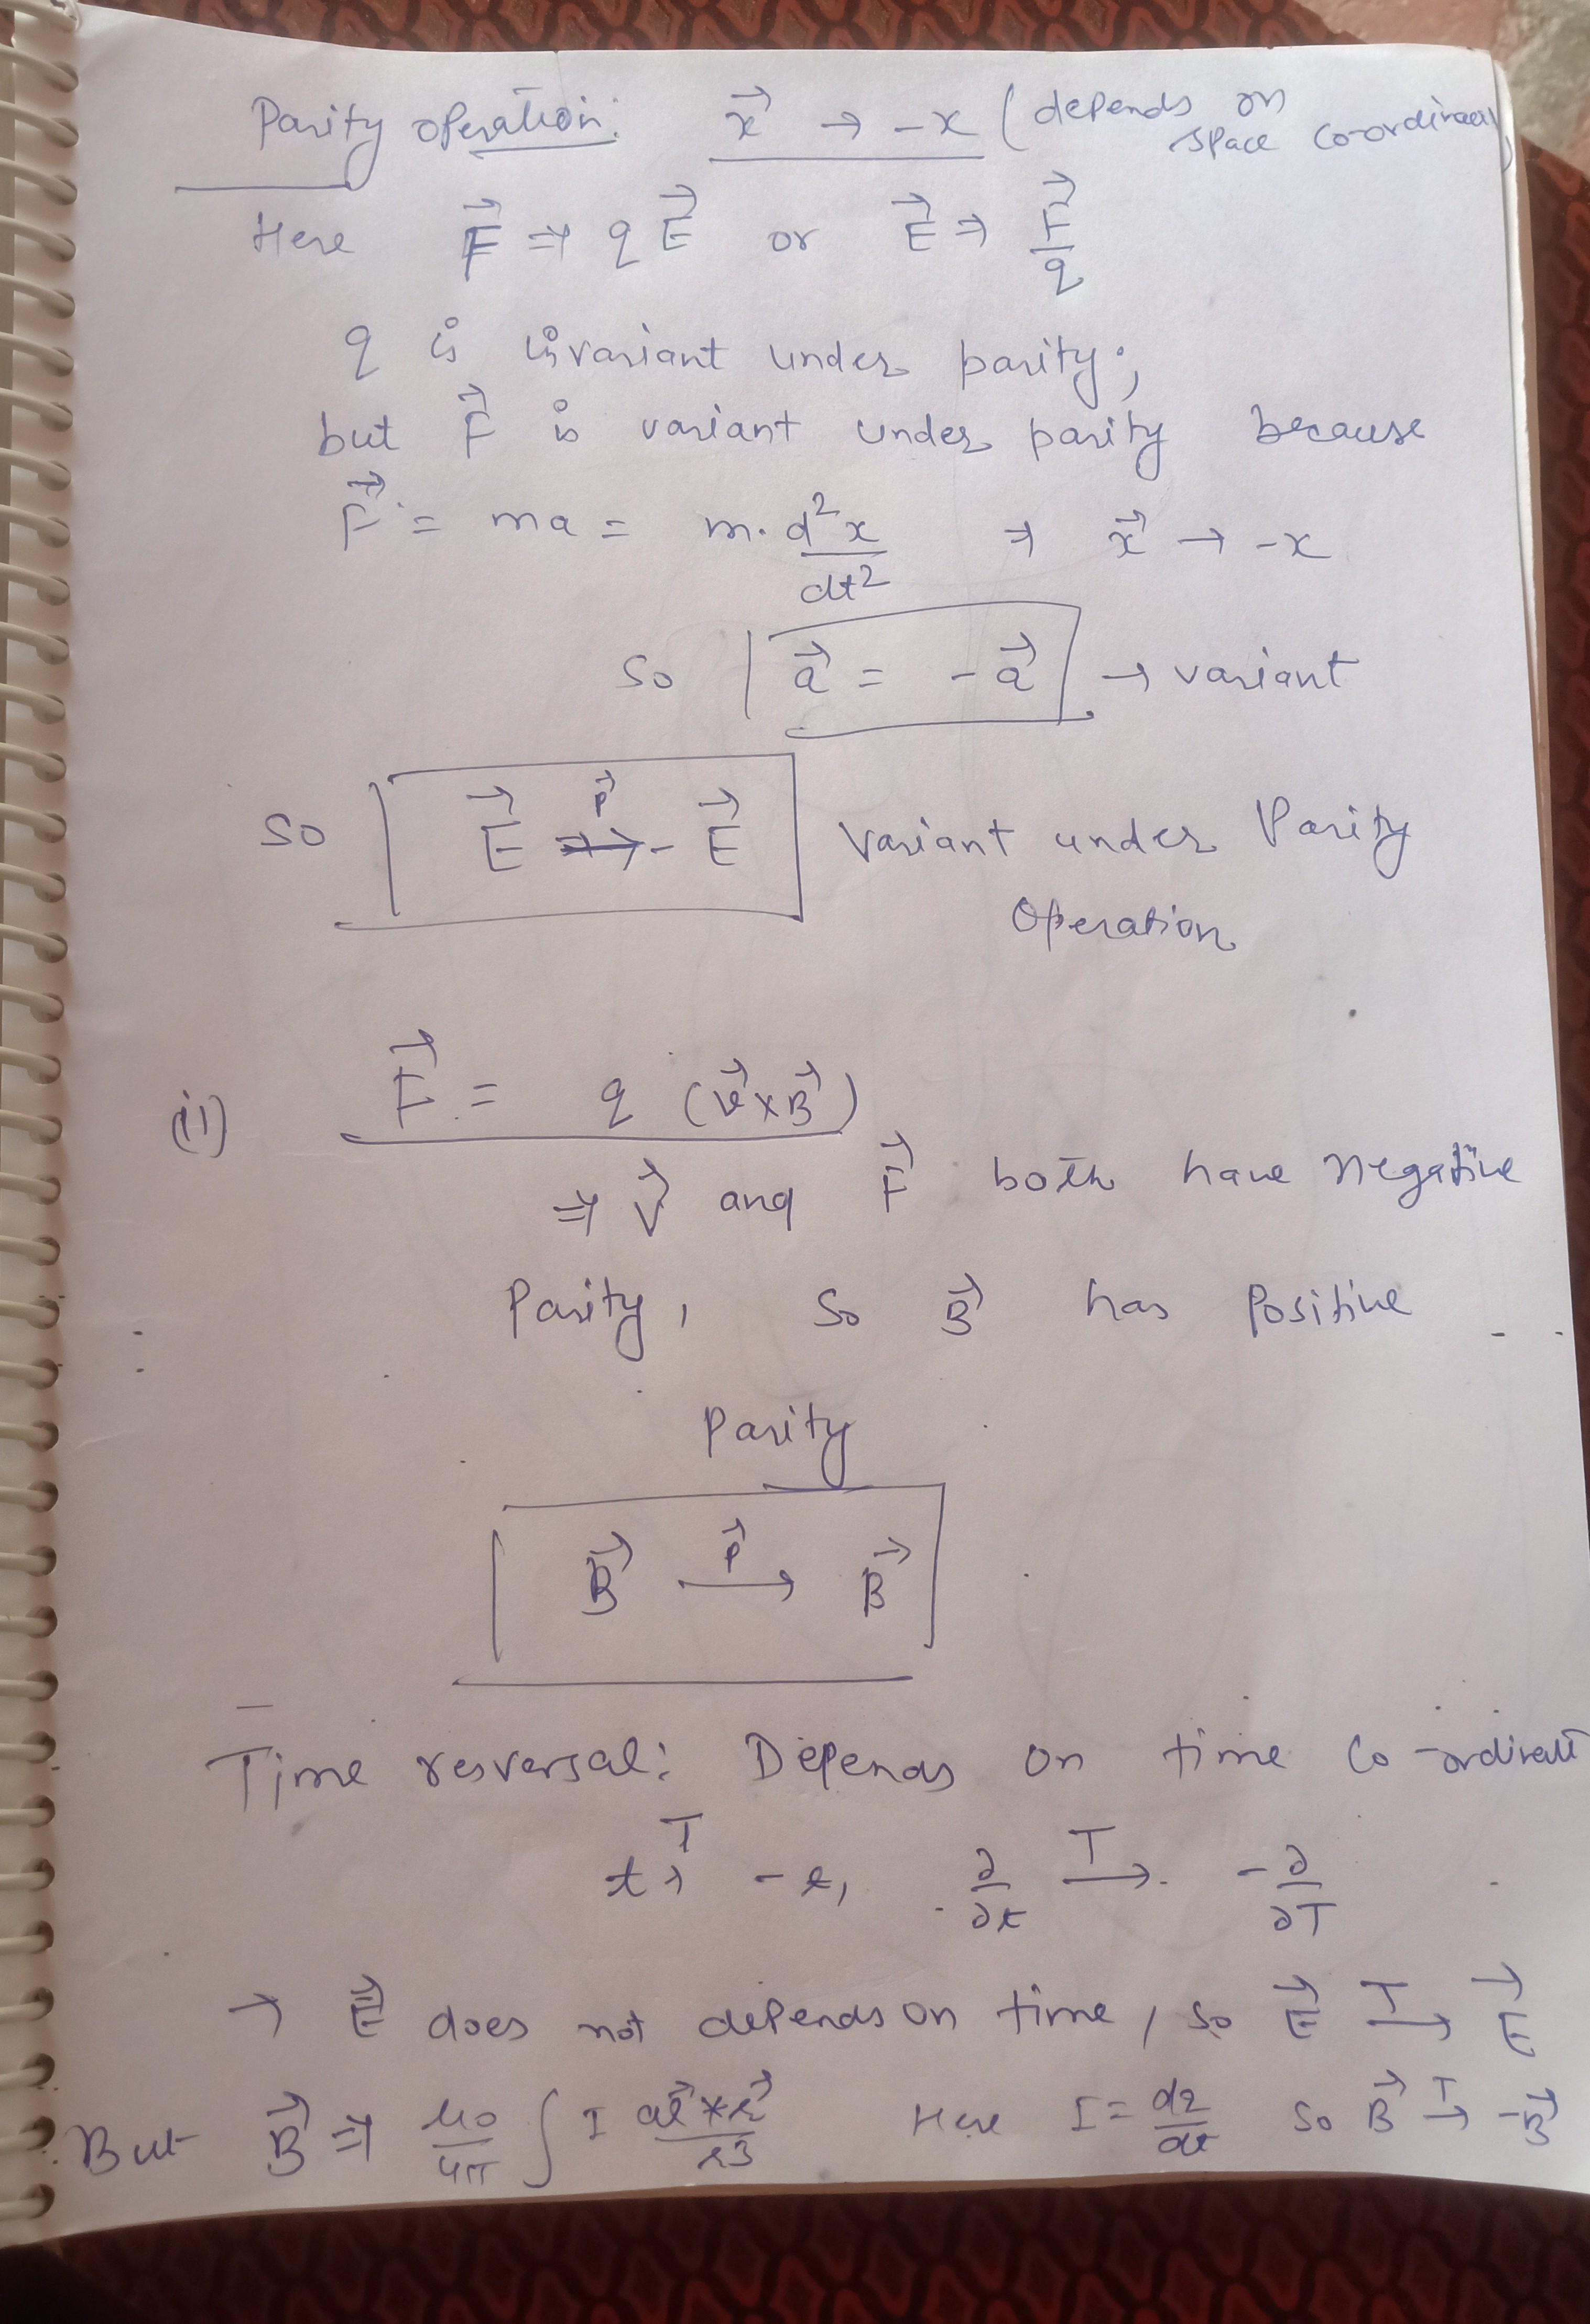 Parity operation: x⃗ → -x (depends on space co-ordinates)
Here F⃗ ⇒ qE⃗ or E⃗ ⇒ F⃗/q
q is invariant under parity;
but F⃗ is variant under parity because
F⃗ = ma = m. d²x/dt² ⇒ x⃗ → -x
so a⃗ = -a⃗ → variant
so E⃗ →(P⃗) -E⃗ Variant under Parity
Operation
(ii) F⃗ = q (v⃗×B⃗)
⇒ V⃗ and F⃗ both have negative
Parity, so B⃗ has Positive
Parity
B⃗ →(P⃗) B⃗
Time resversal: Depends on time co-ordinate
t →(T) -t, ∂/∂t →(T) -∂/∂T
→ E⃗ does not depends on time, so E⃗ →(T) E⃗
But B⃗ ⇒ μ0/4π ∫ I dl⃗×r⃗/r3 Here I = dq/dt so B⃗ →(T) -B⃗